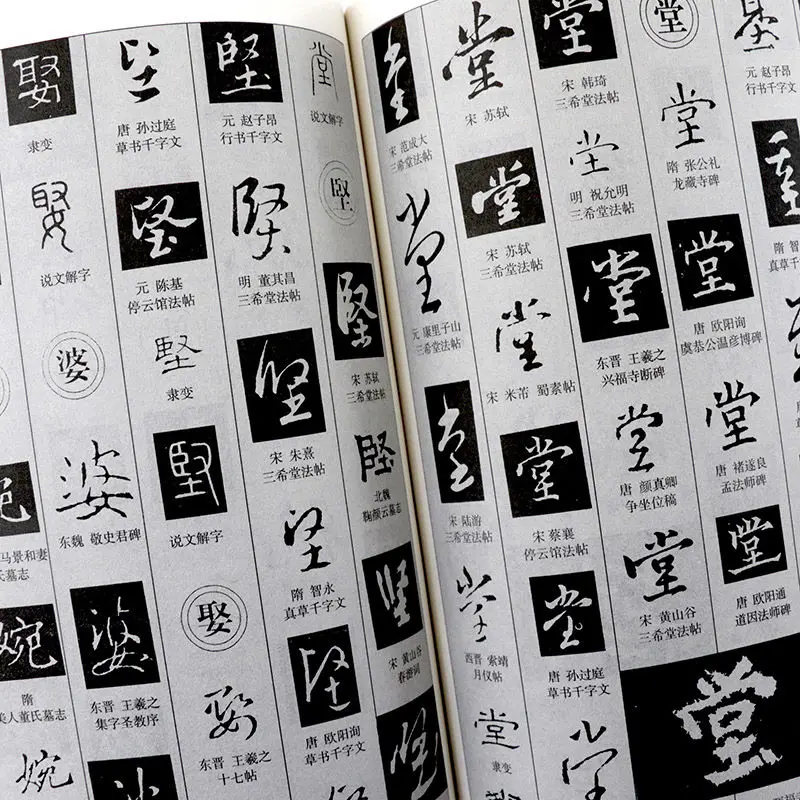 基
元 赵子昂
行书千字文
堂
堂
隋 张公礼
龙藏寺碑
堂
唐 欧阳询
虞恭公温彦博碑
堂
唐 褚遂良
孟法师碑
堂
唐 欧阳通
道因法师碑
堂
堂
宋 韩琦
三希堂法帖
堂
明 祝允明
三希堂法帖
堂
东晋 王羲之
兴福寺断碑
堂
唐 颜真卿
争坐位稿
堂
宋 黄山谷
三希堂法帖
堂
宋 苏轼
堂
宋 苏轼
三希堂法帖
堂
宋 米芾 蜀素帖
堂
宋 蔡襄
停云馆法帖
堂
唐 孙过庭
草书千字文
堂
堂
宋 范成大
三希堂法帖
堂
元 康里子山
三希堂法帖
堂
宋 陆游
三希堂法帖
堂
西晋 索靖
月仪帖
堂
隶变
堂
说文解字
堅
堅
宋 苏轼
三希堂法帖
堅
北魏
鞠颜云墓志
堅
宋 黄山谷
春游词
堅
元 赵子昂
行书千字文
堅
明 董其昌
三希堂法帖
堅
宋 朱熹
三希堂法帖
堅
隋 智永
真草千字文
堅
唐 欧阳询
草书千字文
堅
唐 孙过庭
草书千字文
堅
元 陈基
停云馆法帖
堅
隶变
堅
说文解字
娶
娶
东晋 王羲之
十七帖
娶
隶变
娶
说文解字
婆
婆
东魏 敬史君碑
婆
东晋 王羲之
集字圣教序
婉
马景和妻
氏墓志
婉
隋
美人董氏墓志
婉